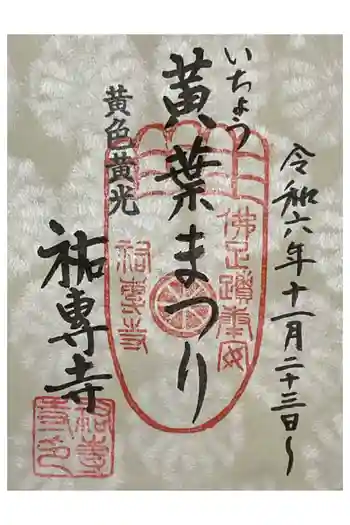 令和六年十一月二十三日〜
いちょう
黄葉まつり
佛足蹟奉安
祐専寺
黄色黄光
祐專寺